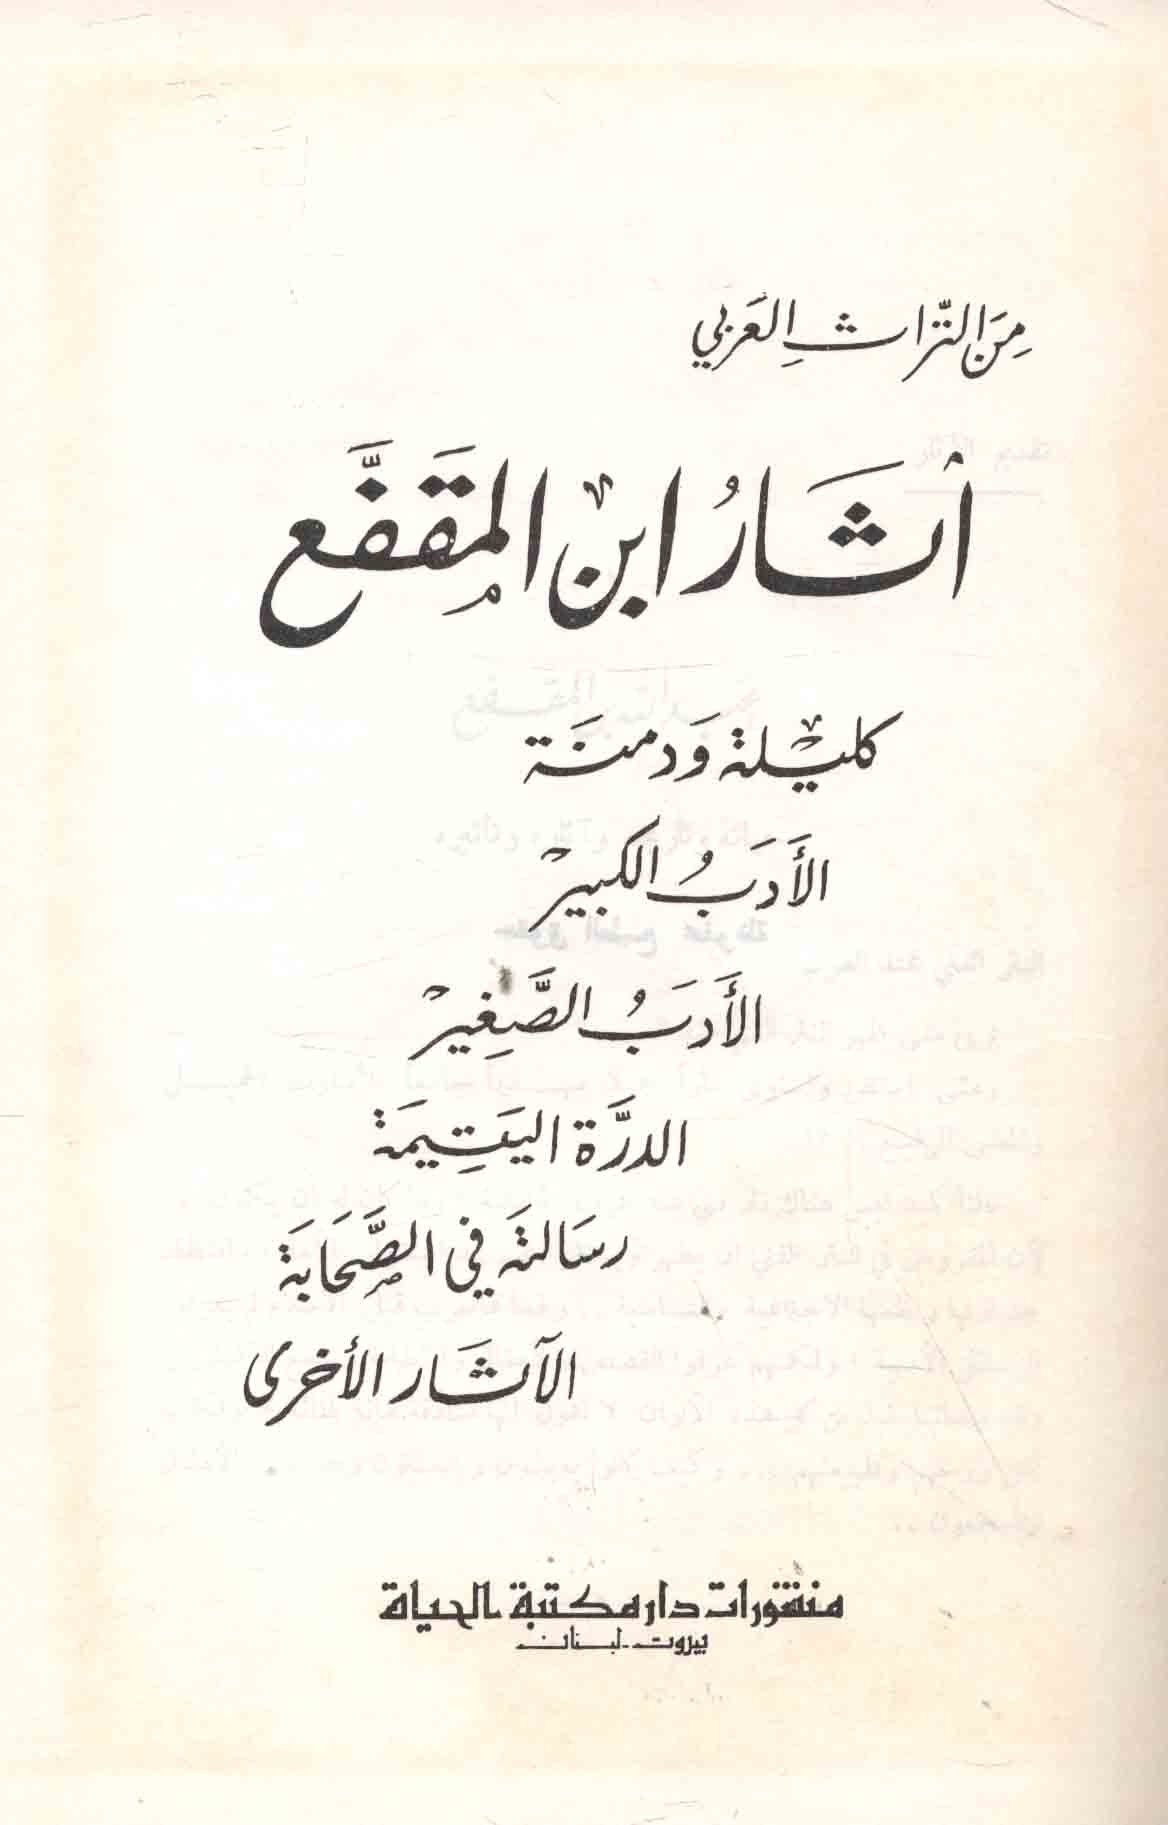 مِنَ التّراثِ العَرَبي
أثَارُ ابن المقَفَّع
كليْلة وَدمنَة
الأدَبُ الكبير
الأدَبُ الصَّغِير
الدرَّة اليَتِيمَة
رسَالَة في الصَّحَابَة
الآثَار الأخرى
منشورات دار مكتبة الحياة
بيروت - لبنان